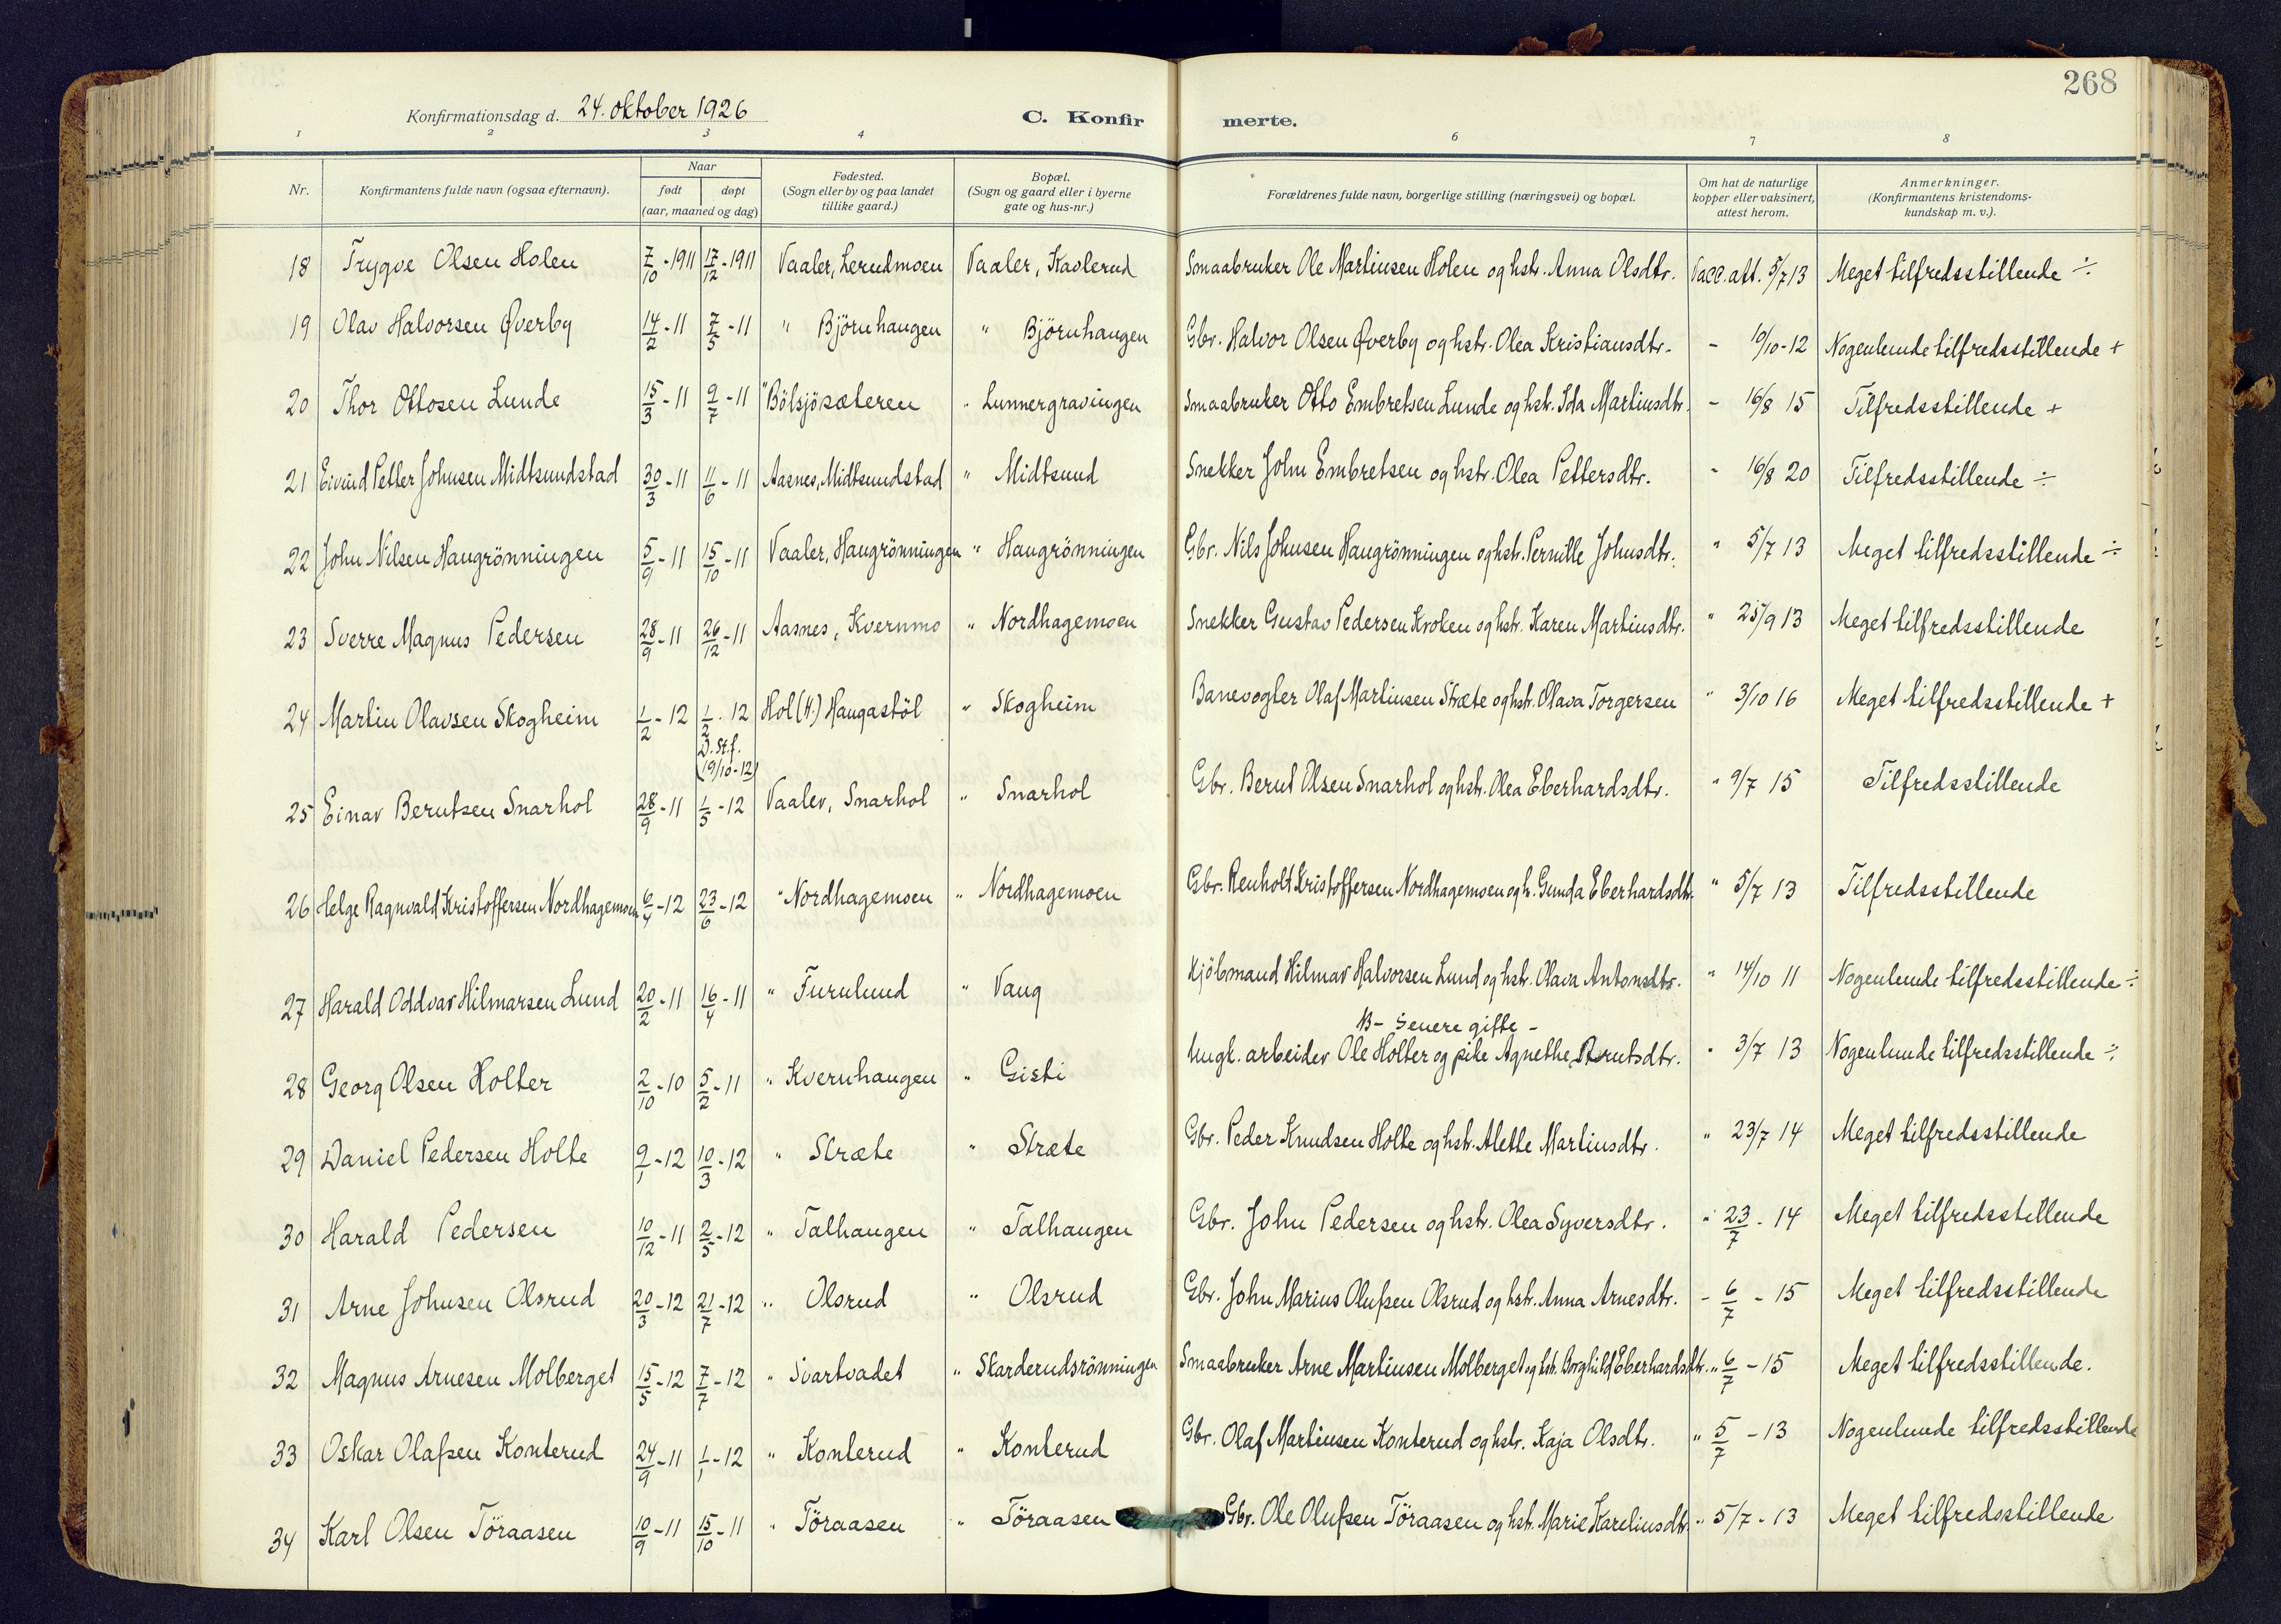 268
Konfirmationsdag d. 24. oktober 1926 C. Konfirmerte.
1 2 3 4 6 7 8
Nr. Konfirmantens fulde navn (ogsaa efternavn). Naar født døpt (aar, maaned og dag) Fødested. (Sogn eller by og paa landet tillike gaard.) Bopæl. (Sogn og gaard eller i byerne gate og hus-nr.) Forældrenes fulde navn, borgerlige stilling (næringsvei) og bopæl. Om hat de naturlige kopper eller vaksinert, attest herom. Anmerkninger. (Konfirmantens kristendomskundskap m. v.).
18 Trygve Olsen Holen 7/10-1911 17/12-1911 Vaaler, Lerudmoen Vaaler, Kavlerud Smaabruker Ole Martinsen Holen og hstr. Anna Olsdtr. Vacc. att. 5/7 13 Meget tilfredsstillende ÷
19 Olav Halvorsen Øverby 14/2-11 7/5-11 " Björnhaugen " Björnhaugen Gbr. Halvor Olsen Øverby og hstr. Olea Kristiansdtr. - 10/10-12 Nogenlunde tilfredsstillende +
20 Thor Ottosen Lunde 15/3-11 9/7-11 " Bölsjösæteren " Lunnergravingen Smaabruker Otto Embretsen Lunde og hstr. Ida Martinsdtr. - 16/8 15 Tilfredsstillende +
21 Eivind Petter Johnsen Midtsundstad 30/3-11 11/6-11 Aasnes, Midtsundstad " Midtsund Snekker John Embretsen og hstr. Olea Pettersdtr. - 16/8 20 Tilfredsstillende ÷
22 John Nilsen Haugrönningen 5/9-11 15/10-11 Vaaler, Haugrönningen " Haugrönningen Gbr. Nils Johnsen Haugrönningen og hstr. Pernille Johnsdtr. " 5/7 13 Meget tilfredsstillende ÷
23 Sverre Magnus Pedersen 28/9-11 26/12-11 Aasnes, Kvernmo " Nordhagemoen Snekker Gustav Pedersen Kroken og hstr. Karen Martinsdtr. " 25/9 13 Meget tilfredsstillende
24 Martin Olavsen Skogheim 1/2-12 1/2.12 D. St. f. (19/10-12) Hol (H.) Haugastöl " Skogheim Banevogter Olaf Martinsen Stræte og hstr. Olava Torgersen " 3/10 16 Meget tilfredsstillende +
25 Einar Berntsen Snarhol 28/9-11 1/5-12 Vaaler, Snarhol " Snarhol Gbr. Bernt Olsen Snarhol og hstr. Olea Eberhardsdtr. " 9/7 15 Tilfredsstillende
26 Helge Ragnvald Kristoffersen Nordhagemoen 6/4-12 23/6-12 " Nordhagemoen " Nordhagemoen Gbr. Renholt Kristoffersen Nordhagemoen og h. Gunda Eberhardsdtr. " 5/7 13 Tilfredsstillende
27 Harald Oddvar Hilmarsen Lund 20/2-11 16/4-11 " Furulund " Vang Kjöbmand Hilmar Halvorsen Lund og hstr. Olava Antonsdtr. " 14/10 11 Nogenlunde tilfredsstillende ÷
NB- senere gifte -
28 Georg Olsen Holter 2/10-10 5/2-11 " Kvernhaugen " Gisti Ungk. arbeider Ole Holter og pike Agnethe Berntsdtr. " 3/7 13 Nogenlunde tilfredsstillende ÷
29 Daniel Pedersen Holte 9/1-12 10/3-12 " Stræte " Stræte Gbr. Peder Knudsen Holte og hstr. Alette Martinsdtr. " 23/7 14 Meget tilfredsstillende
30 Harald Pedersen 10/12-11 2/5-12 " Talhaugen " Talhaugen Gbr. John Pedersen og hstr. Olea Syversdtr. " 23/7-14 Meget tilfredsstillende
31 Arne Johnsen Olsrud 20/3-12 21/7-12 " Olsrud " Olsrud Gbr. John Marius Olufsen Olsrud og hstr. Anna Arnesdtr. - 6/7-15 Meget tilfredsstillende
32 Magnus Arnesen Molberget 15/5-12 7/7-12 " Svartvadet " Skarderudsrönningen Smaabruker Arne Martinsen Molberget og hstr. Borghild Eberhardsdtr. " 6/7-15 Meget tilfredsstillende.
33 Oskar Olafsen Konterud 24/9-11 1/1-12 " Konterud " Konterud Gbr. Olaf Martinsen Konterud og hstr. Kaja Olsdtr. " 5/7-13 Nogenlunde tilfredsstillende
34 Karl Olsen Töraasen 10/9-11 15/10-11 " Töraasen " Töraasen Gbr. Ole Olufsen Töraasen og hstr. Marie Kareliusdtr. " 5/7-13 Meget tilfredsstillende